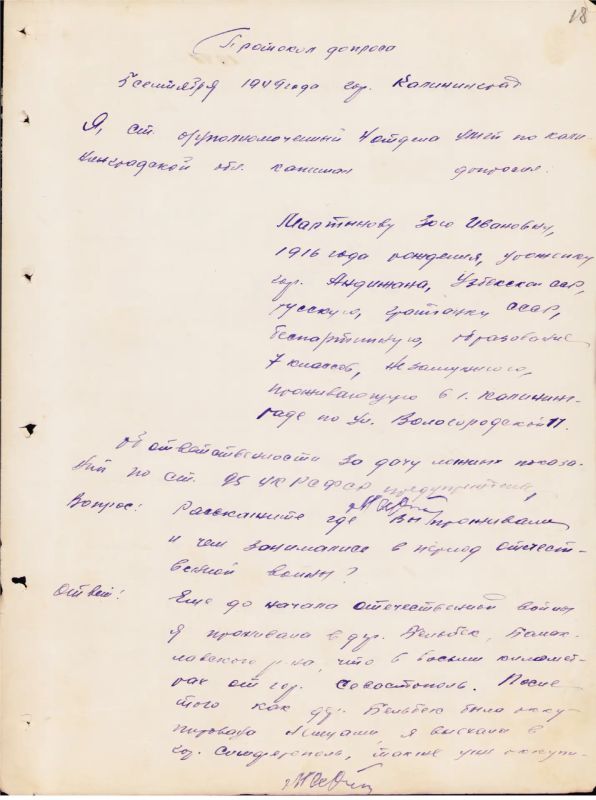 18
Протокол допроса
5 сентября 1949 года гор. Калининград
Я, ст. оперуполномоченный 4 отдела УМГБ по Кали-
нинградской обл. капитан допросил:
Мартынову Зою Ивановну,
1916 года рождения, уроженку
гор. Андижана, Узбекской ССР,
русскую, гражданку СССР,
беспартийную, образование
7 классов, незамужнюю,
проживающую в г. Калинин-
граде по ул.
Об ответственности за дачу ложных показа-
ний по ст. 95 УК РСФСР предупреждена,
Вопрос: Расскажите где Вы проживали
и чем занимались в период отечест-
венной войны?
Ответ: Еще до начала отечественной войны
я проживала в дер. Бельбек, Балак-
лавского р-на, что в восьми километ-
рах от гор. Севастополь. После
того как дер. Бельбек была окку-
пирована немцами я выехала в
гор. Симферополь, также уже оккупи-